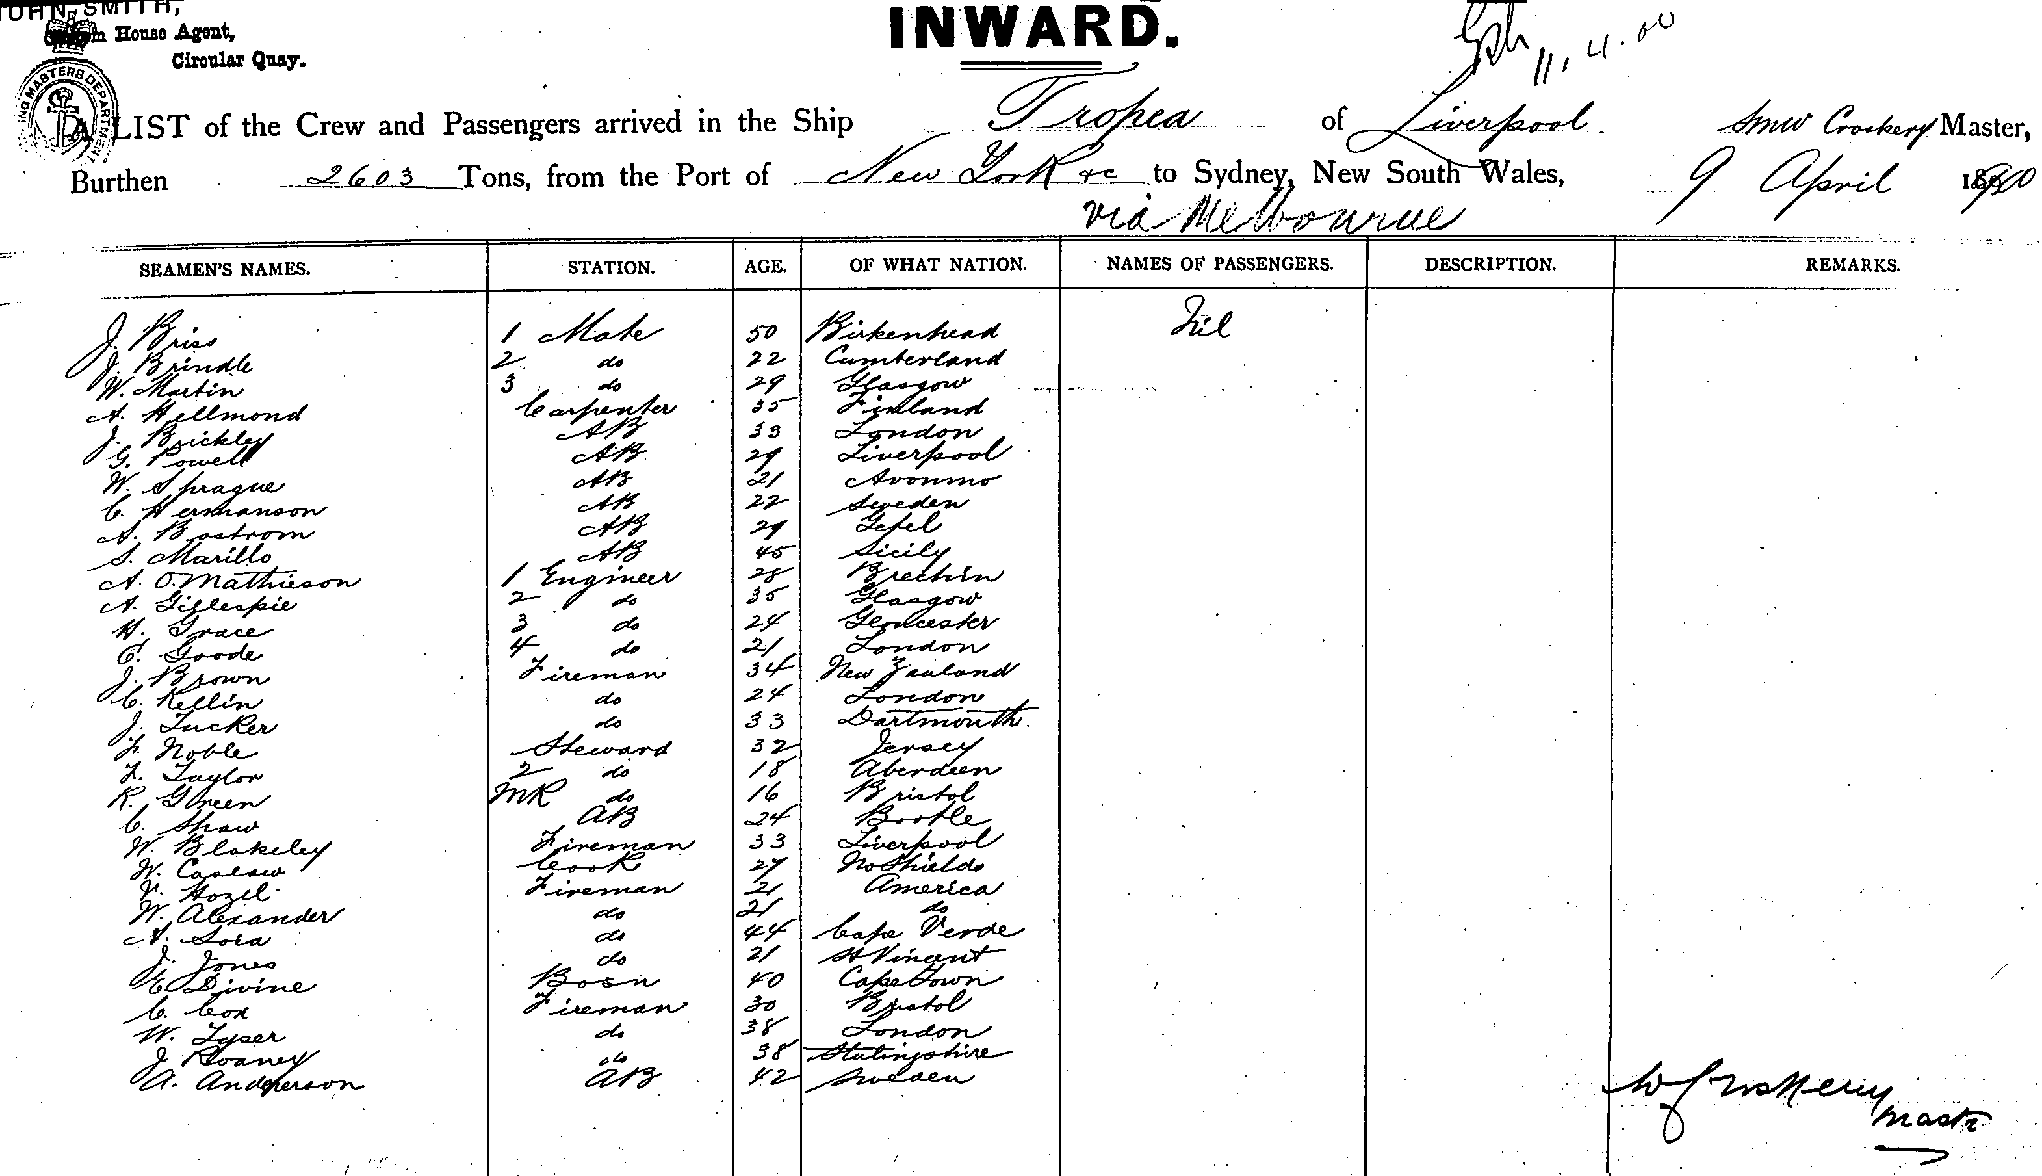 JOHN SMITH,
House Agent,
Circular Quay.
INWARD.
11.4.00
SHIPPING MASTERS DEPARTMENT
A LIST of the Crew and Passengers arrived in the Ship Tropea of Liverpool. Master,
Burthen 2603 Tons, from the Port of New York &c to Sydney, New South Wales, 9 April 1900
via Melbourne
SEAMEN'S NAMES. STATION. AGE. OF WHAT NATION. NAMES OF PASSENGERS. DESCRIPTION. REMARKS.
J. Briss 1 Mate 50 Birkenhead Nil
J. Brindle 2 do 22 Cumberland
W. Martin 3 do 29 Glasgow
A. Hellmond Carpenter 35 Finland
J. Brickley AB 33 London
G. Powell AB 29 Liverpool
W. Sprague AB 21 Avonmo
C. Hermanson AB 22 Sweden
A. Bostrom AB 29 Gefel
S. Marillo AB 45 Sicily
A. O. Mathieson 1 Engineer 28 Brechin
A. Gillespie 2 do 35 Glasgow
H. Grace 3 do 24 Gloucester
C. Goode 4 do 21 London
J. Brown Fireman 34 New Zealand
C. Kellin do 24 London
J. Tucker do 33 Dartmouth
F. Noble Steward 32 Jersey
F. Taylor 2 do 18 Aberdeen
R. Green MR do 16 Bristol
C. Shaw AB 24 Bootle
W. Blakeley Fireman 33 Liverpool
W. Caslaw Cook 27 No Shields
V. Hozel Fireman 21 America
W. Alexander do 21 do
A. Sora do 44 Cape Verde
J. Jones do 21 St Vincent
E. Divine Bosn 40 Cape Town
C. Cox Fireman 30 Bristol
W. Tyser do 38 London
J. Roaney do 38 Stirlingshire
A. Anderson AB 42 Sweden
Mastr